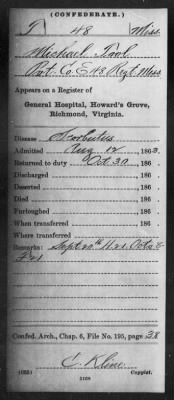 (CONFEDERATE.)
T 48 Miss.
Michael
Pvt. Co. E 48 Regt Miss
Appears on a Register
of
General Hospital, Howard's Grove,
Richmond, Virginia.
Disease Scorbutus
Admitted Aug 12, 1863.
Returned to duty Oct 30, 186
Discharged , 186
Deserted , 186
Died , 186
Furloughed , 186
When transferred , 186
Where transferred
Remarks: Sept
Confed. Arch., Chap. 6, File No. 195, page 38
C. Kline
Copyist.